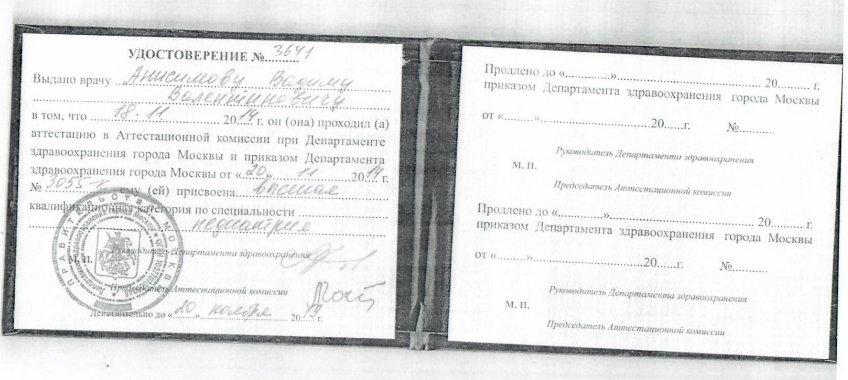 УДОСТОВЕРЕНИЕ № 3641
Выдано врачу Анисимову Вадиму
Валентиновичу
в том, что 18.11 2014 г. он (она) проходил (а)
аттестацию в Аттестационной комиссии при Департаменте
здравоохранения города Москвы и приказом Департамента
здравоохранения города Москвы от «20» 11 2014 г.
№ 3055-к ему (ей) присвоена высшая
квалификационная категория по специальности
педиатрия
Руководитель Департамента здравоохранения
М. П.
Председатель Аттестационной комиссии
Действительно до «20» ноября 2019 г.
ПРАВИТЕЛЬСТВО МОСКВЫ
Продлено до «............»........................ 20......... г.
приказом Департамента здравоохранения города Москвы
от «.........»........................20......г. №...........
Руководитель Департамента здравоохранения
М. П.
Председатель Аттестационной комиссии
Продлено до «............»........................ 20......... г.
приказом Департамента здравоохранения города Москвы
от «.........»........................20......г. №...........
Руководитель Департамента здравоохранения
М. П.
Председатель Аттестационной комиссии